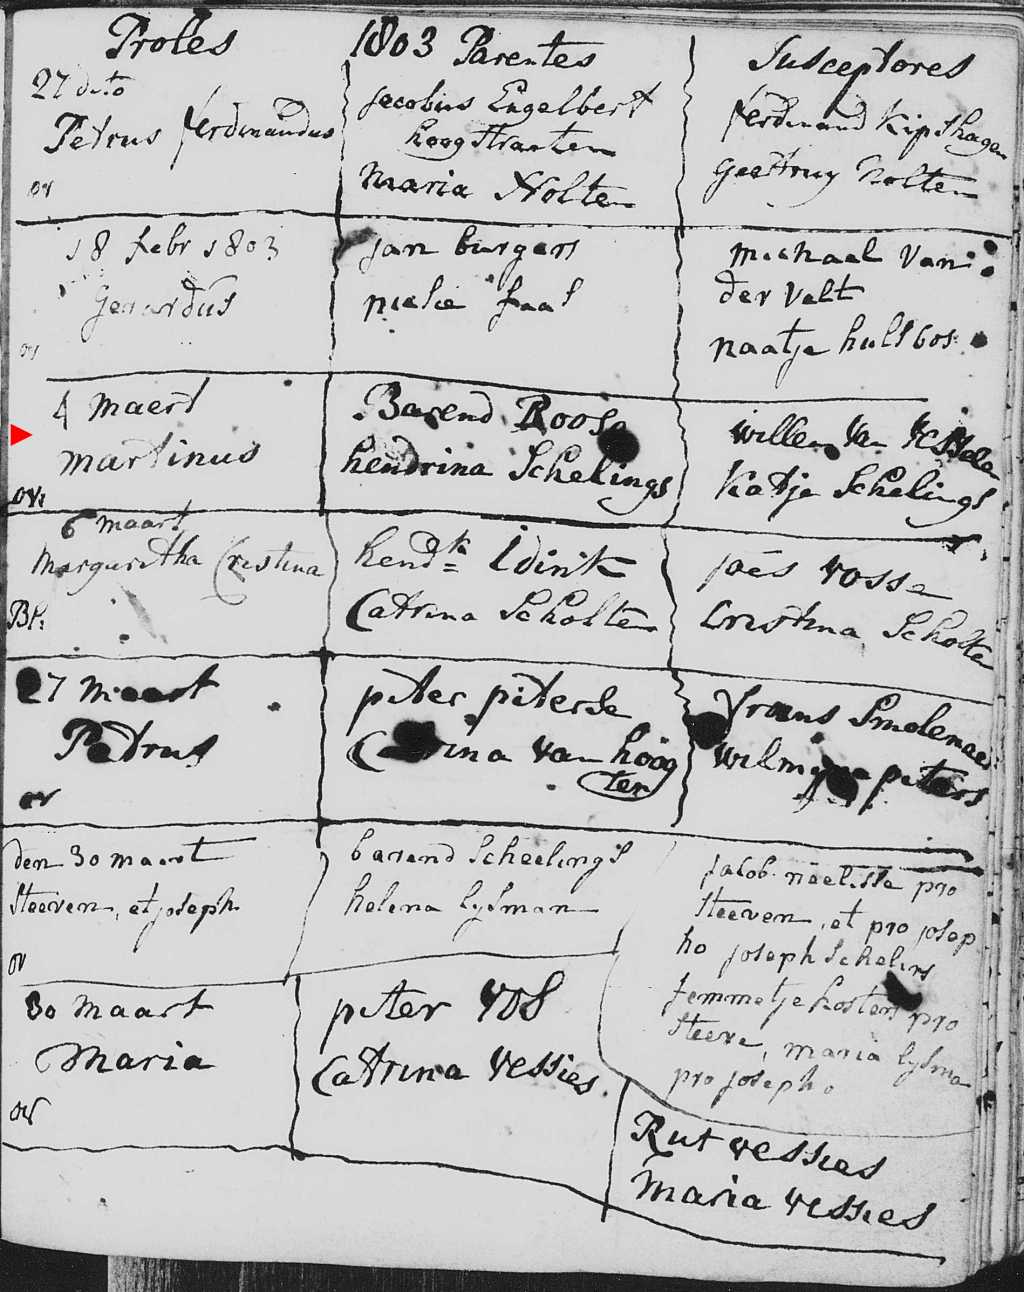 Proles
1803 Parentes
Susceptores
27 dito
Petrus ferdinandus
ov
Jacobus Engelbert
hoogstraaten
Maria Nolten
ferdinand Kipshagen
geertruy Nolten
18 febr 1803
Gerardus
ov
jan burgers
faal
michael van
der Valt
naatje hulsbos
4 maert
martinus
ov:
Barend Roos
hendrina Schelings
willem van
Katje Schelings
6 maart
Margaretha Cristina
Bt:
hendk Idink
Catrina Scholten
joes vosse
Cristina Scholte
27 maart
Petrus
ov
piter piterse
Catrina van hoog
ten
frans Smolenaer
wilmyna piters
den 30 maart
Steeven, et joseph
ov
barend Scheelings
helena lysman
jacob pro
Steeven, et pro josep
ho joseph Schelins
femmetje kosters pro
Steeve, maria lysma
pro josepho
30 maart
Maria
ov
piter vos
Catrina vessies
Rut vessies
Maria vessies